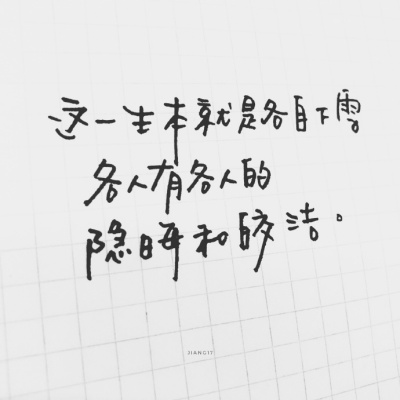 这一生本就是各自下雪
各人有各人的
隐晦和皎洁。
JIANGIT